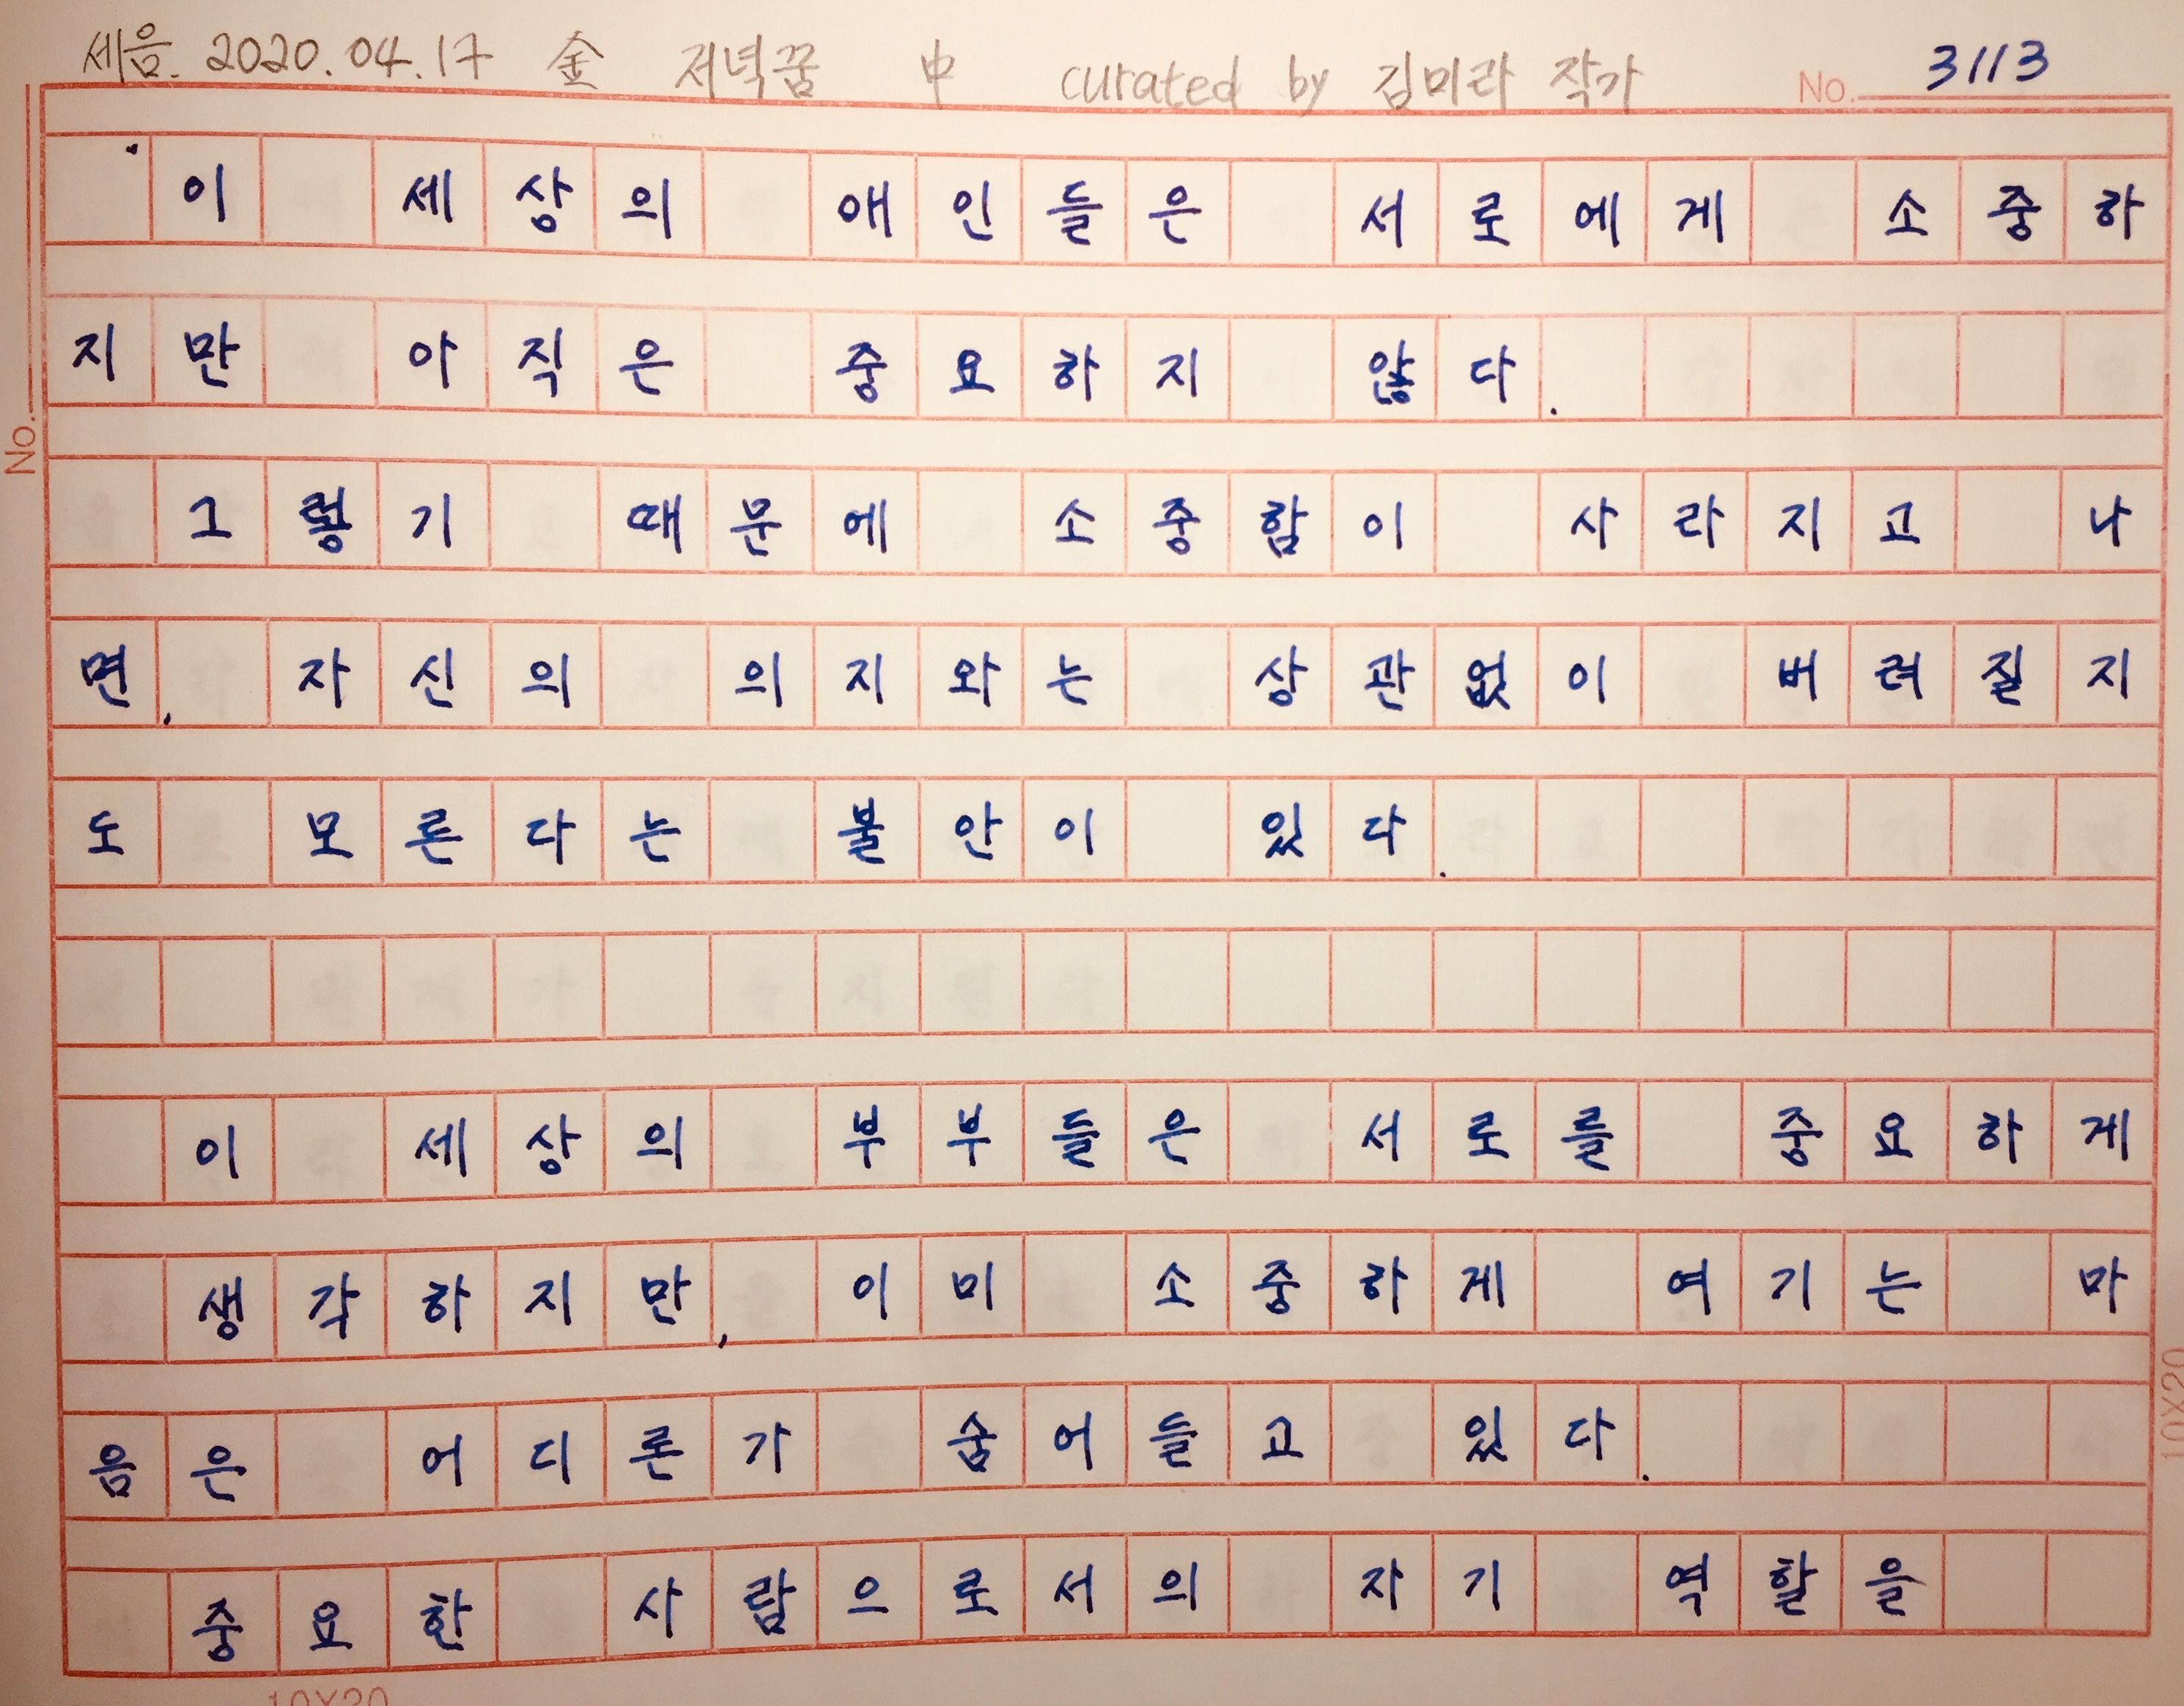 세음. 2020.04.17 金 저녁꿈 中 curated by 김미라 작가 No. 3113
이 세상의 애인들은 서로에게 소중하
지만 아직은 중요하지 않다.
그렇기 때문에 소중함이 사라지고 나
면, 자신의 의지와는 상관없이 버려질지
도 모른다는 불안이 있다.
이 세상의 부부들은 서로를 중요하게
생각하지만, 이미 소중하게 여기는 마
음은 어디론가 숨어들고 있다.
중요한 사람으로서의 자기 역할을
No.
10X20
10X20